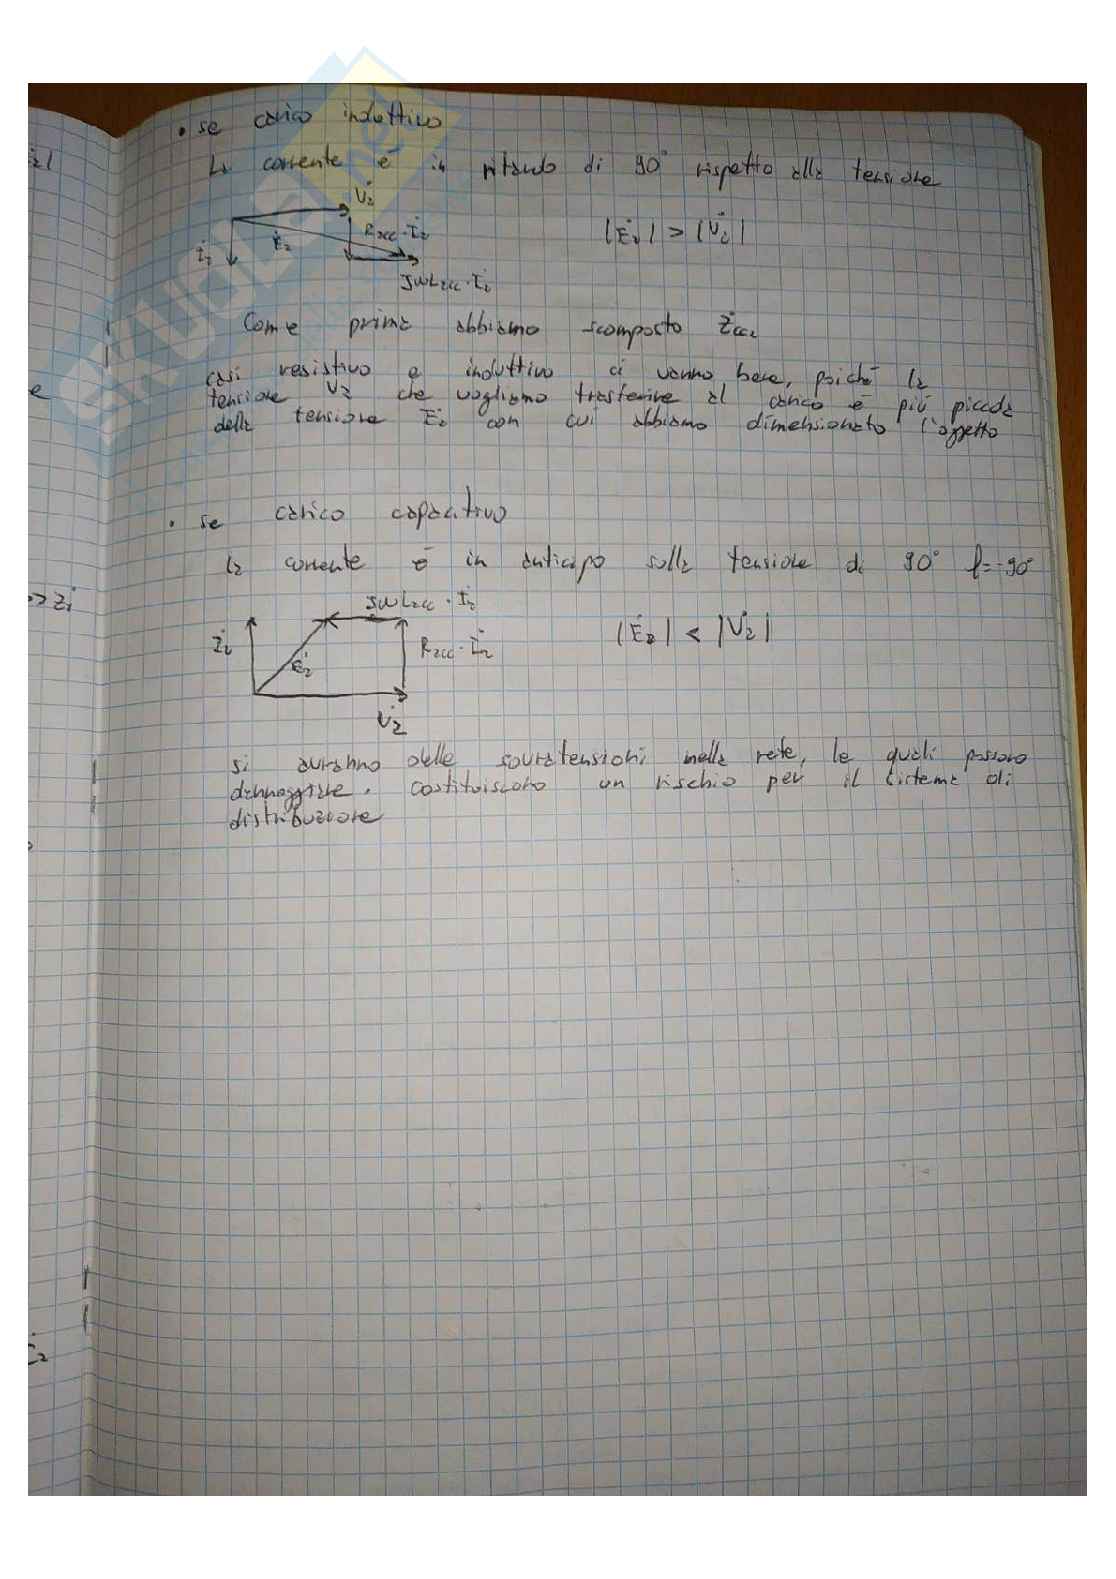 • se carico induttivo
la corrente è in ritardo di 90° rispetto alla tensione
V̇₂
R₂cc·İ₂
|Ė₂| > |V̇₂|
İ₂
Ė₂
JωL₂cc·İ₂
Come prima abbiamo scomposto Żcc₂
casi resistivo e induttivo ci vanno bene, poiché la
tensione V̇₂ che vogliamo trasferire al carico è più piccola
della tensione Ė₂ con cui abbiamo dimensionato l'oggetto
• se carico capacitivo
la corrente è in anticipo sulla tensione di 90° φ=-90°
JωL₂cc·İ₂
İ₂
Ė₂
R₂cc·İ₂
|Ė₂| < |V̇₂|
V̇₂
si avranno delle sovratensioni nella rete, le quali possono
danneggiare. costituiscono un rischio per il sistema di
distribuzione
SKUOLA.net